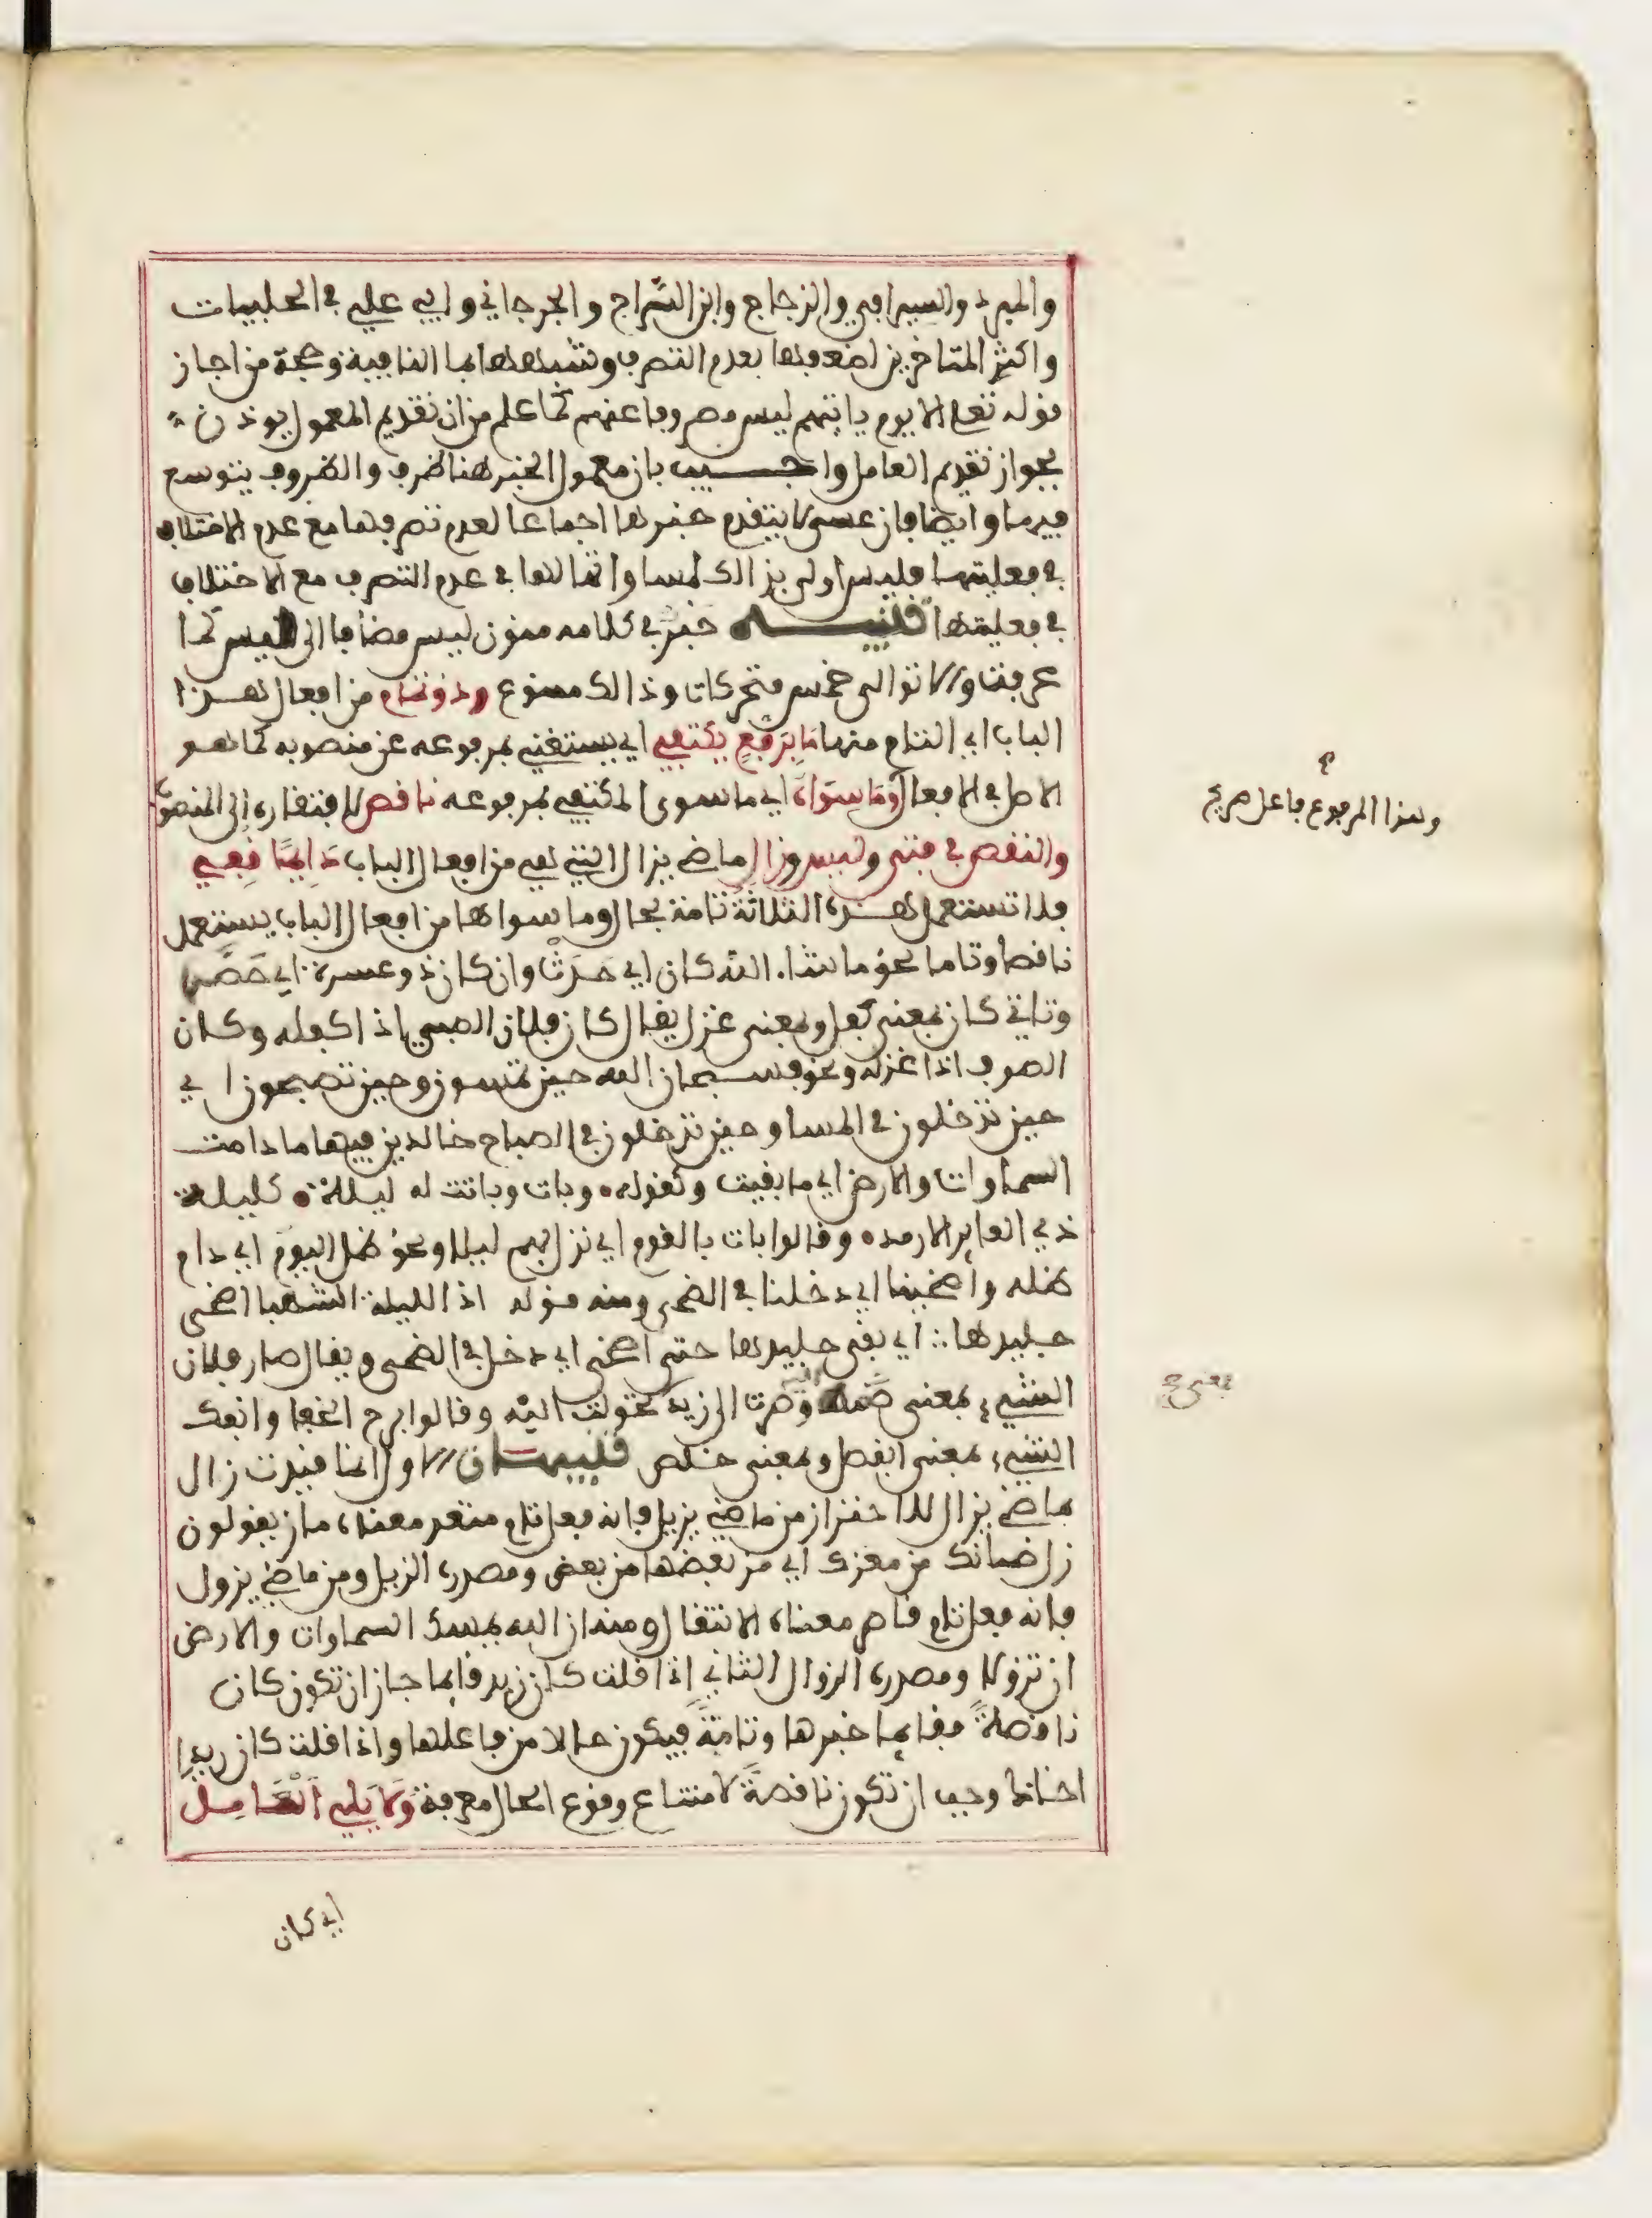 والمبرد والسيرافي والزجاج وابن السَّراج والجرجاني وابي علي في الحلبيات
واكثر المتاخرين لضعفها بعدم التصرف وشبهها بما النافية وحجة من اجاز
قوله تعلى الا يوم ياتيهم ليس مصروفا عنهم لما علم من ان تقديم المعمول يوذن
بجواز تقديم العامل واجيب بان معمول الخبر هنا ظرف والظروف يتوسع
فيها وايضا فان عسى لا يتقدم خبرها اجماعا لعدم تصرفها مع عدم الاختلاف
في فعليتها فليس اولى بذالك لمساواتها لها في عدم التصرف مع الاختلاف
في فعليتها تنبيه خبر في كلامه منون ليس مضافا الى ليس كما
عرفت والا توالى خمس متحركات وذالك ممنوع وذو تمام من افعال هذا
الباب اي التام منها مَا بِرَفْعٍ يكتفي اي يستغني بمرفوعه عن منصوبه كما هو
الاصل في الافعال وَمَا سِوَاه اي ما سوى المكتفي بمرفوعه ناقص لافتقاره الى المنصوب
والنقص في فتئ وليس وزال ماضي يزال التي هي من افعال الباب دَايِمًا قُفِي
فلا تستعمل هذه الثلاثة تامة بحال وما سواها من افعال الباب يستعمل
ناقصا وتاما نحو ما شا. الله كان اي حَدَثَ وان كان ذو عسرة اي حَضَر
وتاتي كان بمعنى كفل وبمعنى غزل يقال كان فلان الصبي اذا كفله وكان
الصوف اذا غزله ونحو فسبحان الله حين تمسون وحين تصبحون اي
حين تدخلون في المسا وحين تدخلون في الصباح خالدين فيها ما دامت
السماوات والارض اي ما بقيت وكقوله وبات وباتت له ليلة كليلة
ذي العاير الارمد وقالوا بات بالقوم اي نزل بهم ليلا ونحو ظل اليوم اي دام
ظله واضحينا اي دخلنا في الضحى ومنه قوله اذا الليلة الشهبا اضحى
جليدها اي بقي جليدها حتى اضحى اي دخل في الضحى ويقال صار فلان
الشيء بمعنى ضمه اليه وصرت الى زيد تحولت اليه وقالوا برح الخفا وانفك
الشيء بمعنى انفصل وبمعنى خلص تنبيهان الاول انما قيدت زال
بماضي يزال للاحتراز من ماضي يزيل فانه فعل تام متعد معناه ماز يقولون
زل ضانك من معزك اي مز بعضها من بعض ومصدره الزيل ومن ماضي يزول
فانه فعل تام قاصر معناه الانتقال ومنه ان الله يمسك السماوات والارض
ان تزولا ومصدره الزوال الثاني اذا قلت كان زيد قايما جاز ان تكون كان
ناقصةً فقايما خبرها وتامةً فيكون حالا من فاعلها واذا قلت كان زيد
اخانا وجب ان تكون ناقصةً لامتناع وقوع الحال معرفة وَلَا يَلِي الْعَامِلَ
وهذا المرفوع فاعل صريح
اي كان